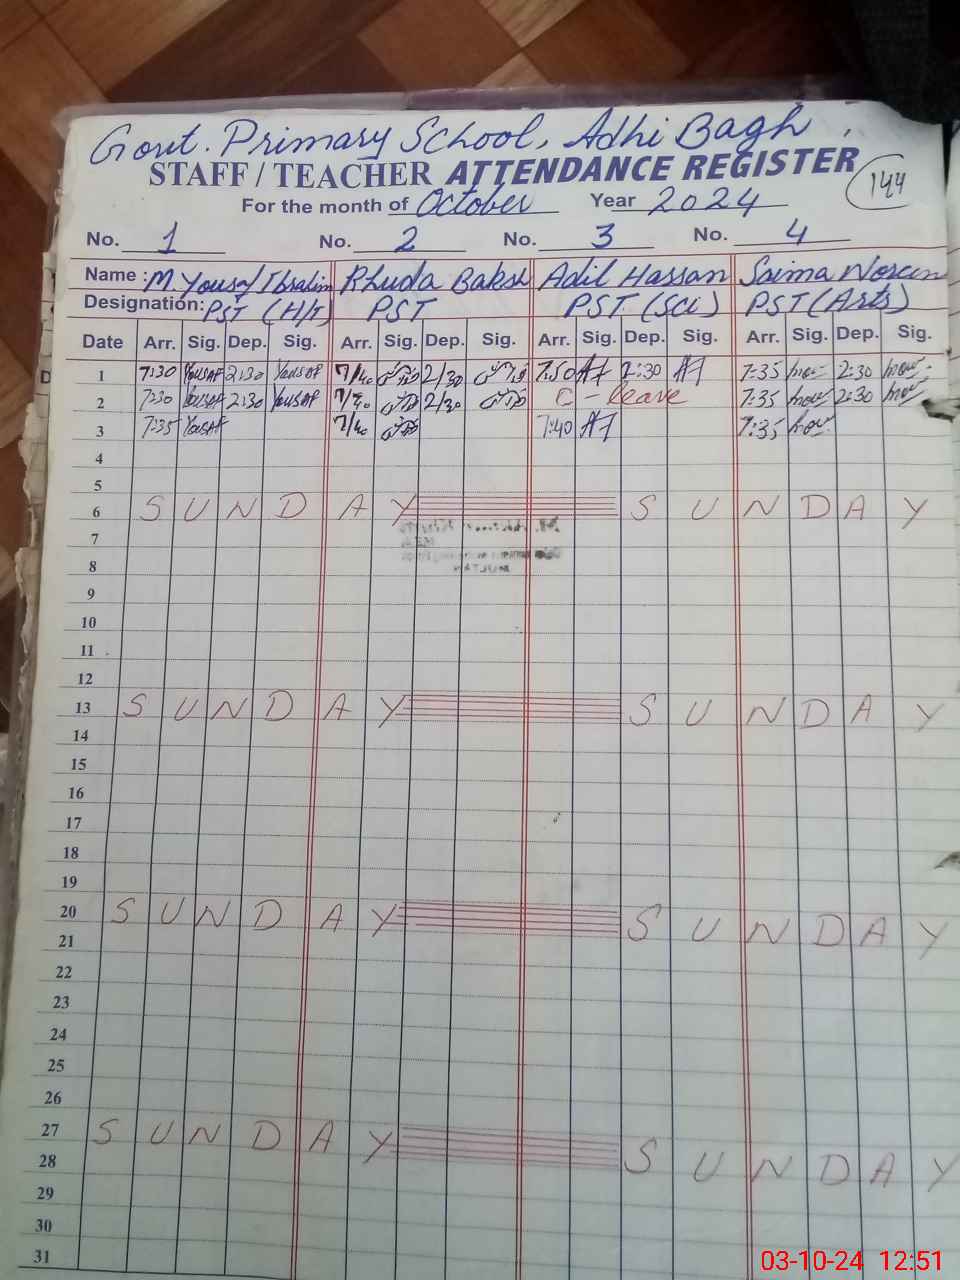 Govt. Primary School, Adhi Bagh.
STAFF / TEACHER ATTENDANCE REGISTER
144
For the month of October Year 2024
No. 1 No. 2 No. 3 No. 4
Name : M. Yousaf Ibrahim Khuda Baksh Adil Hassan Saima Noreen
Designation: PST (H/T) PST PST (Sci) PST (Arts)
Date Arr. Sig. Dep. Sig. Arr. Sig. Dep. Sig. Arr. Sig. Dep. Sig. Arr. Sig. Dep. Sig.
1 7:30 Yousaf 2:30 Yousaf 7/40 2/30 7:50 2:30 7:35 2:30
2 7:30 Yousaf 2:30 Yousaf 7/40 2/30 C - leave 7:35 2:30
3 7:35 Yousaf 7/40 7:40 7:35
4
5
6 SUNDAY SUNDAY
7
8
MULTAN
9
10
11
12
13 SUNDAY SUNDAY
14
15
16
17
18
19
20 SUNDAY SUNDAY
21
22
23
24
25
26
27 SUNDAY SUNDAY
28
29
30
31
03-10-24 12:51